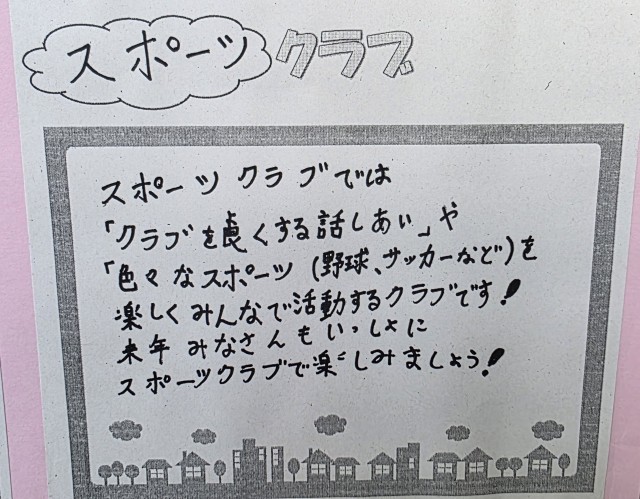 スポーツクラブ
スポーツクラブでは
「クラブを良くする話しあい」や
「色々なスポーツ(野球、サッカーなど)を
楽しくみんなで活動するクラブです!
来年みなさんもいっしょに
スポーツクラブで楽しみましょう!